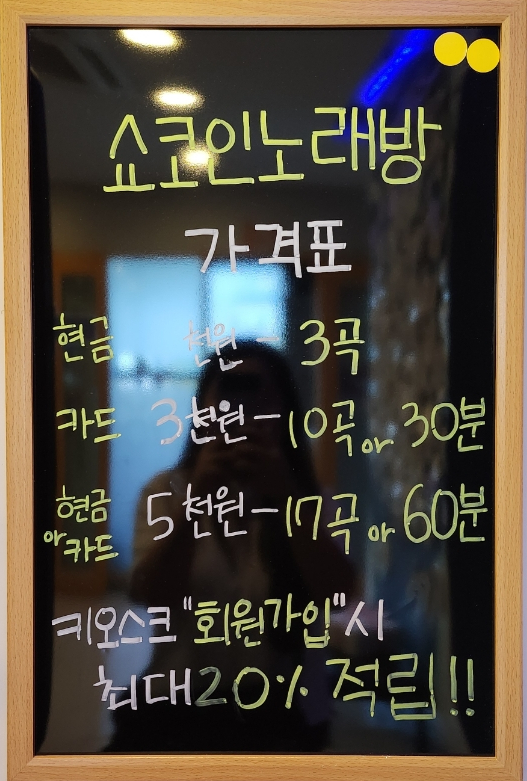 쇼코인노래방
가격표
현금 천원 - 3곡
카드 3천원 - 10곡 or 30분
현금 or 카드 5천원 - 17곡 or 60분
키오스크 "회원가입"시
최대 20% 적립!!